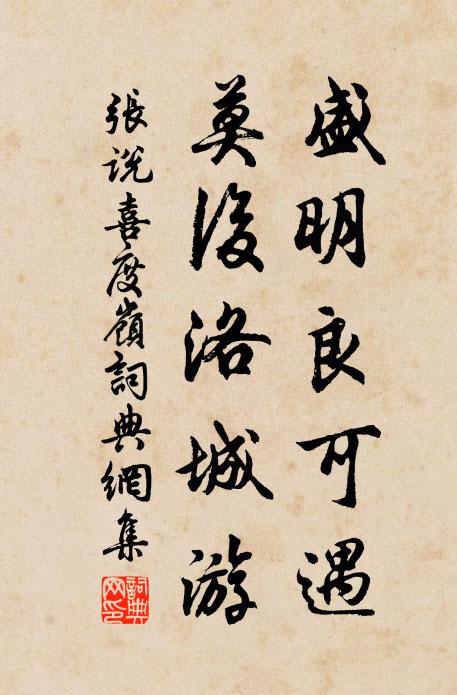 盛明良可遇
莫後洛城游
張說喜度嶺詞典網集
詞典网印